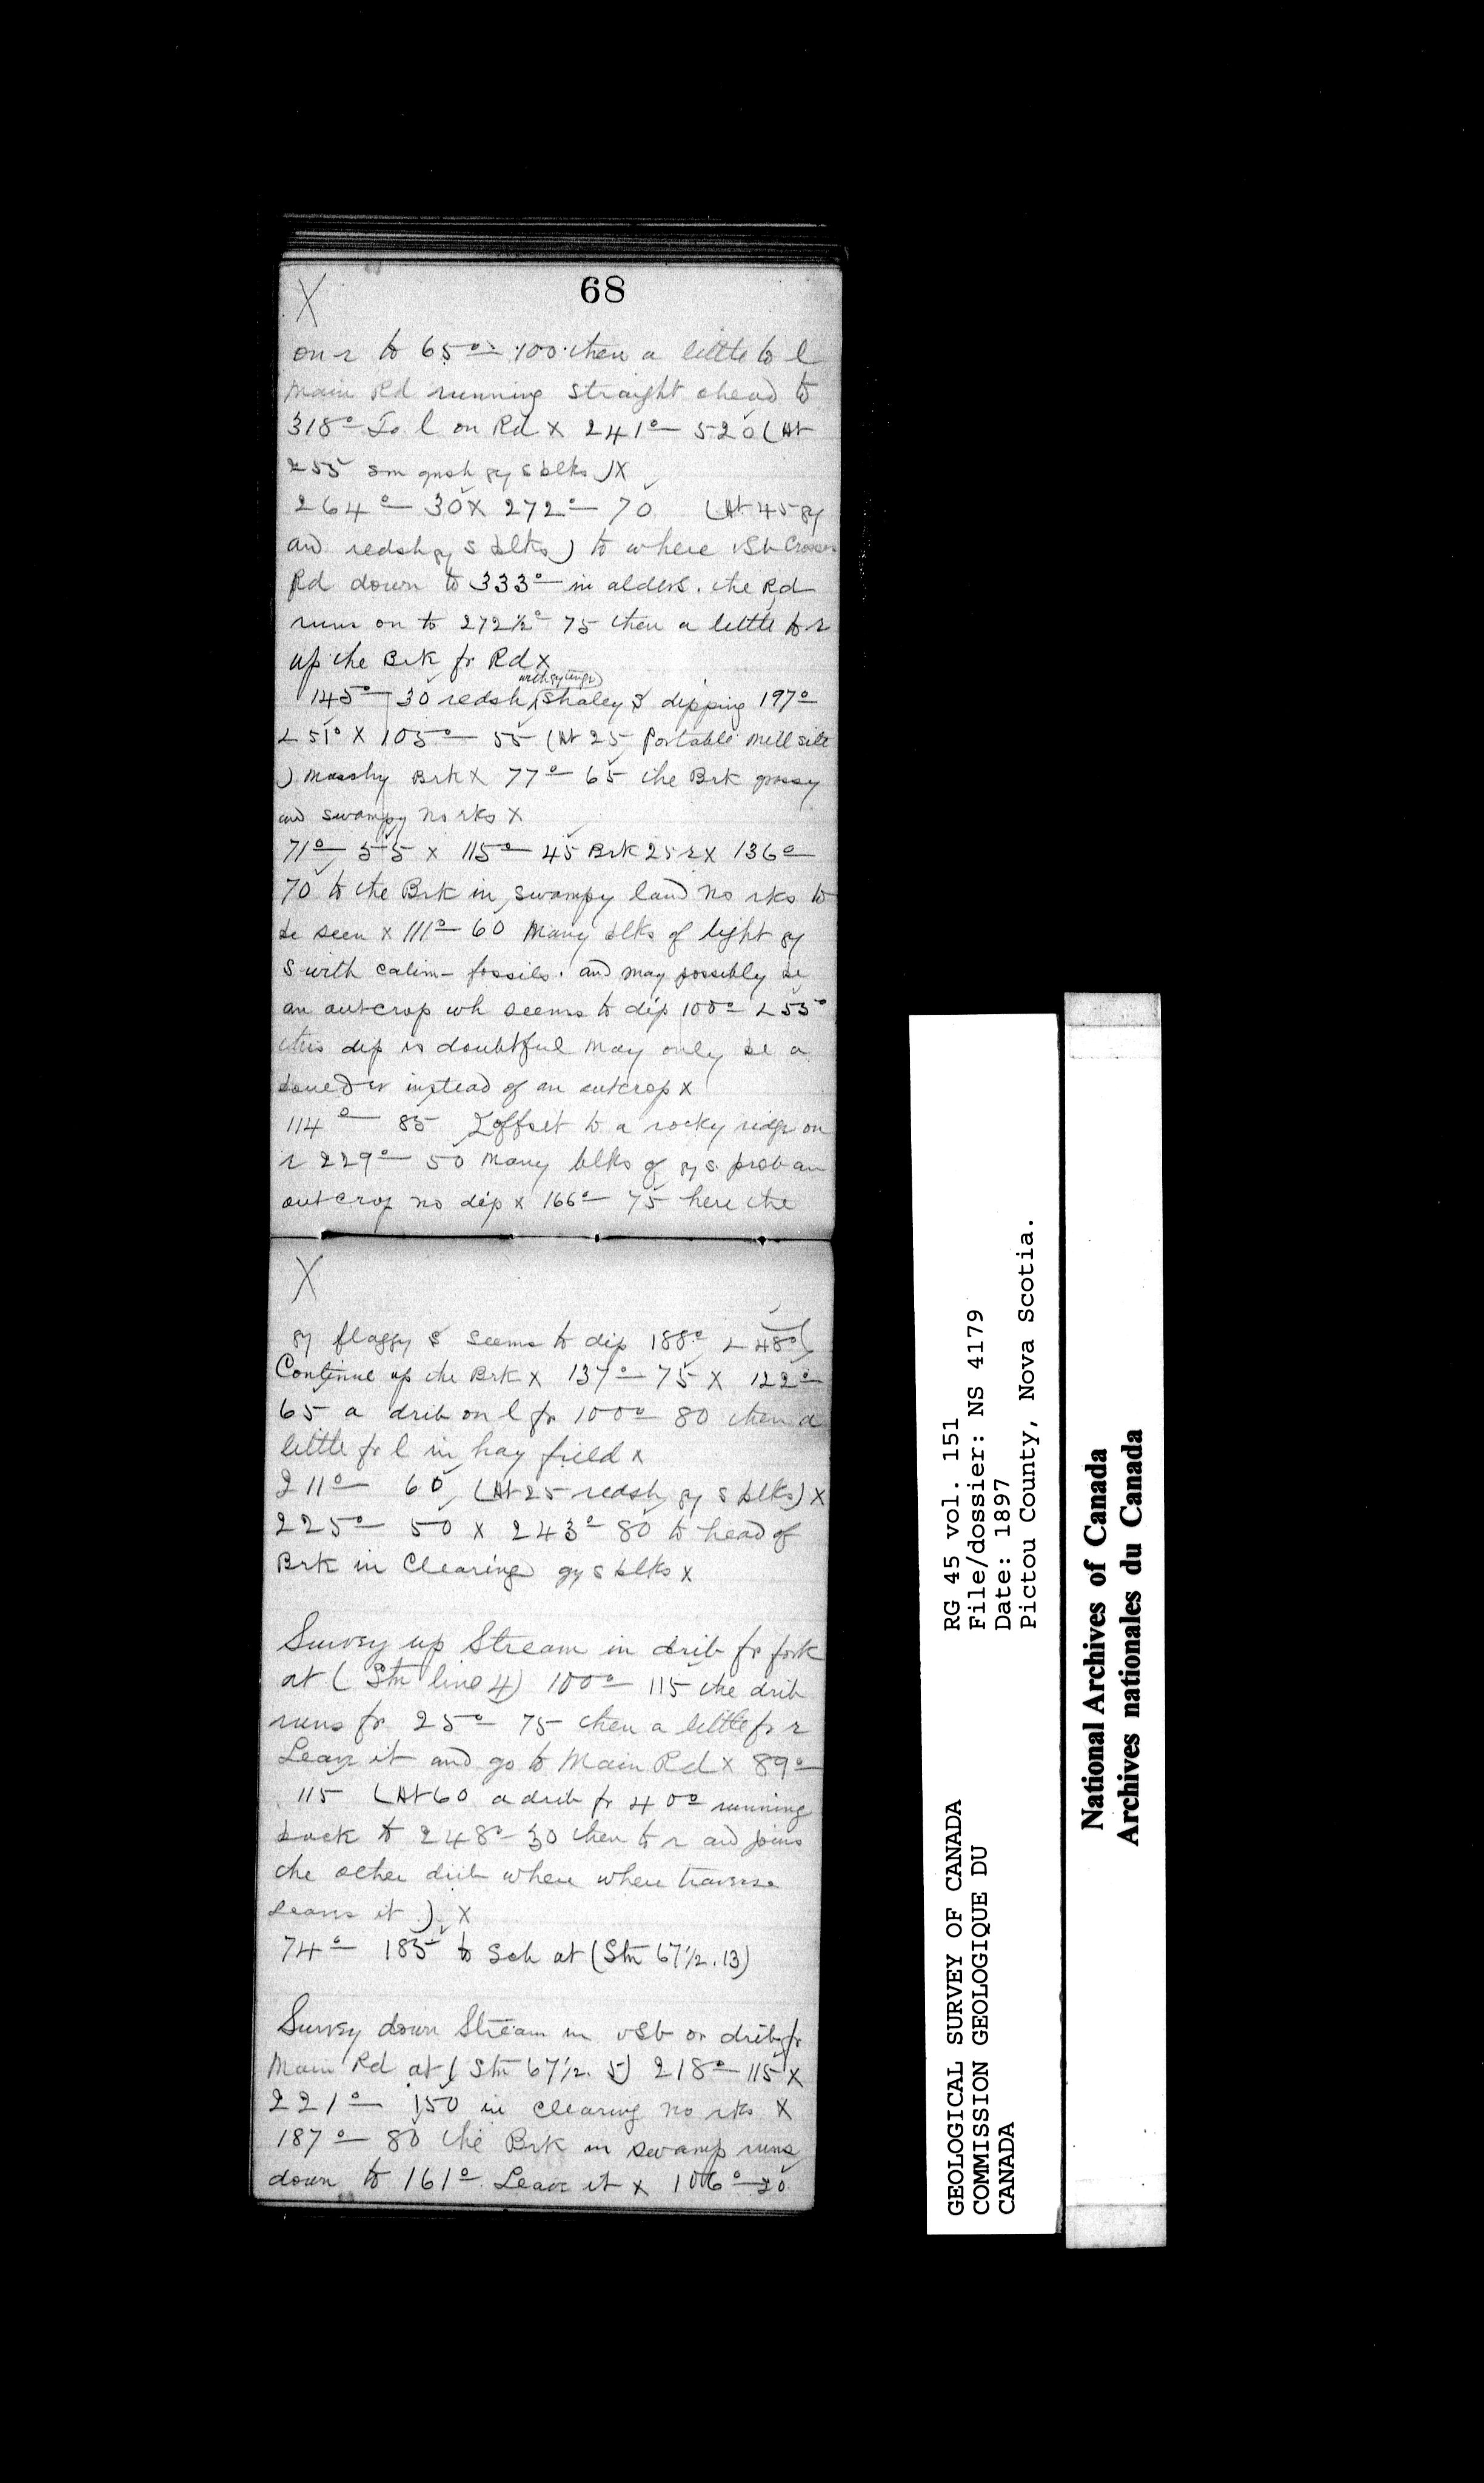 68
X
on r to 65° 100 then a little to l
Main Rd running straight ahead to
318° To l on Rd x 241° 520 (At
255 sm gnsh gy s blks) X
264° 30 x 272° 70 (At 45 gy
and redsh gy s blks) to where vSb Crosses
Rd down to 333° in alders. the Rd
runs on to 272½° 75 then a little to r
up the Brk fr Rd x
145° 30 redsh (with gy tinge) shaley S dipping 197°
∠ 51° x 105° 55 (At 25 Portable mill site
) Marshy Brk x 77° 65 the Brk grassy
and swampy no rks x
71° 55 x 115° 45 Brk 25 r x 136°
70 to the Brk in swampy land no rks to
be seen x 111° 60 Many blks of light gy
S with calim- fossils. and may possibly be
an outcrop wh seems to dip 100° ∠ 55°
this dip is doubtful may only be a
boulder instead of an outcrop x
114° 85 offset to a rocky ridge on
r 229° 50 Many blks of gy s. prob an
outcrop no dip x 166° 75 here the
X
gy flaggy S seems to dip 188° ∠ 48°)
Continue up the Brk x 137° 75 x 122°
65 a drib on l fr 100° 80 then a
little fr l in hay field x
211° 60 (At 25 redsh gy s blks) x
225° 50 x 243° 80 to head of
Brk in Clearing gy s blks x
Survey up Stream in drib fr fork
at (Stn line 4) 100° 115 the drib
runs fr 25° 75 then a little fr r
Leave it and go to Main Rd x 89°
115 (At 60 a drib fr 40° running
back to 248° 30 then to r and joins
the other drib where where traverse
leaves it) x
74° 185 to Sch at (Stn 67½.13)
Survey down Stream in vSb or drib fr
Main Rd at (Stn 67½. 5) 218° 115 x
221° 150 in clearing no rks x
187° 80 the Brk in swamp runs
down to 161° Leave it x 106° 20
RG 45 vol. 151
File/dossier: NS 4179
Date: 1897
Pictou County, Nova Scotia.
GEOLOGICAL SURVEY OF CANADA
COMMISSION GEOLOGIQUE DU
CANADA
National Archives of Canada
Archives nationales du Canada